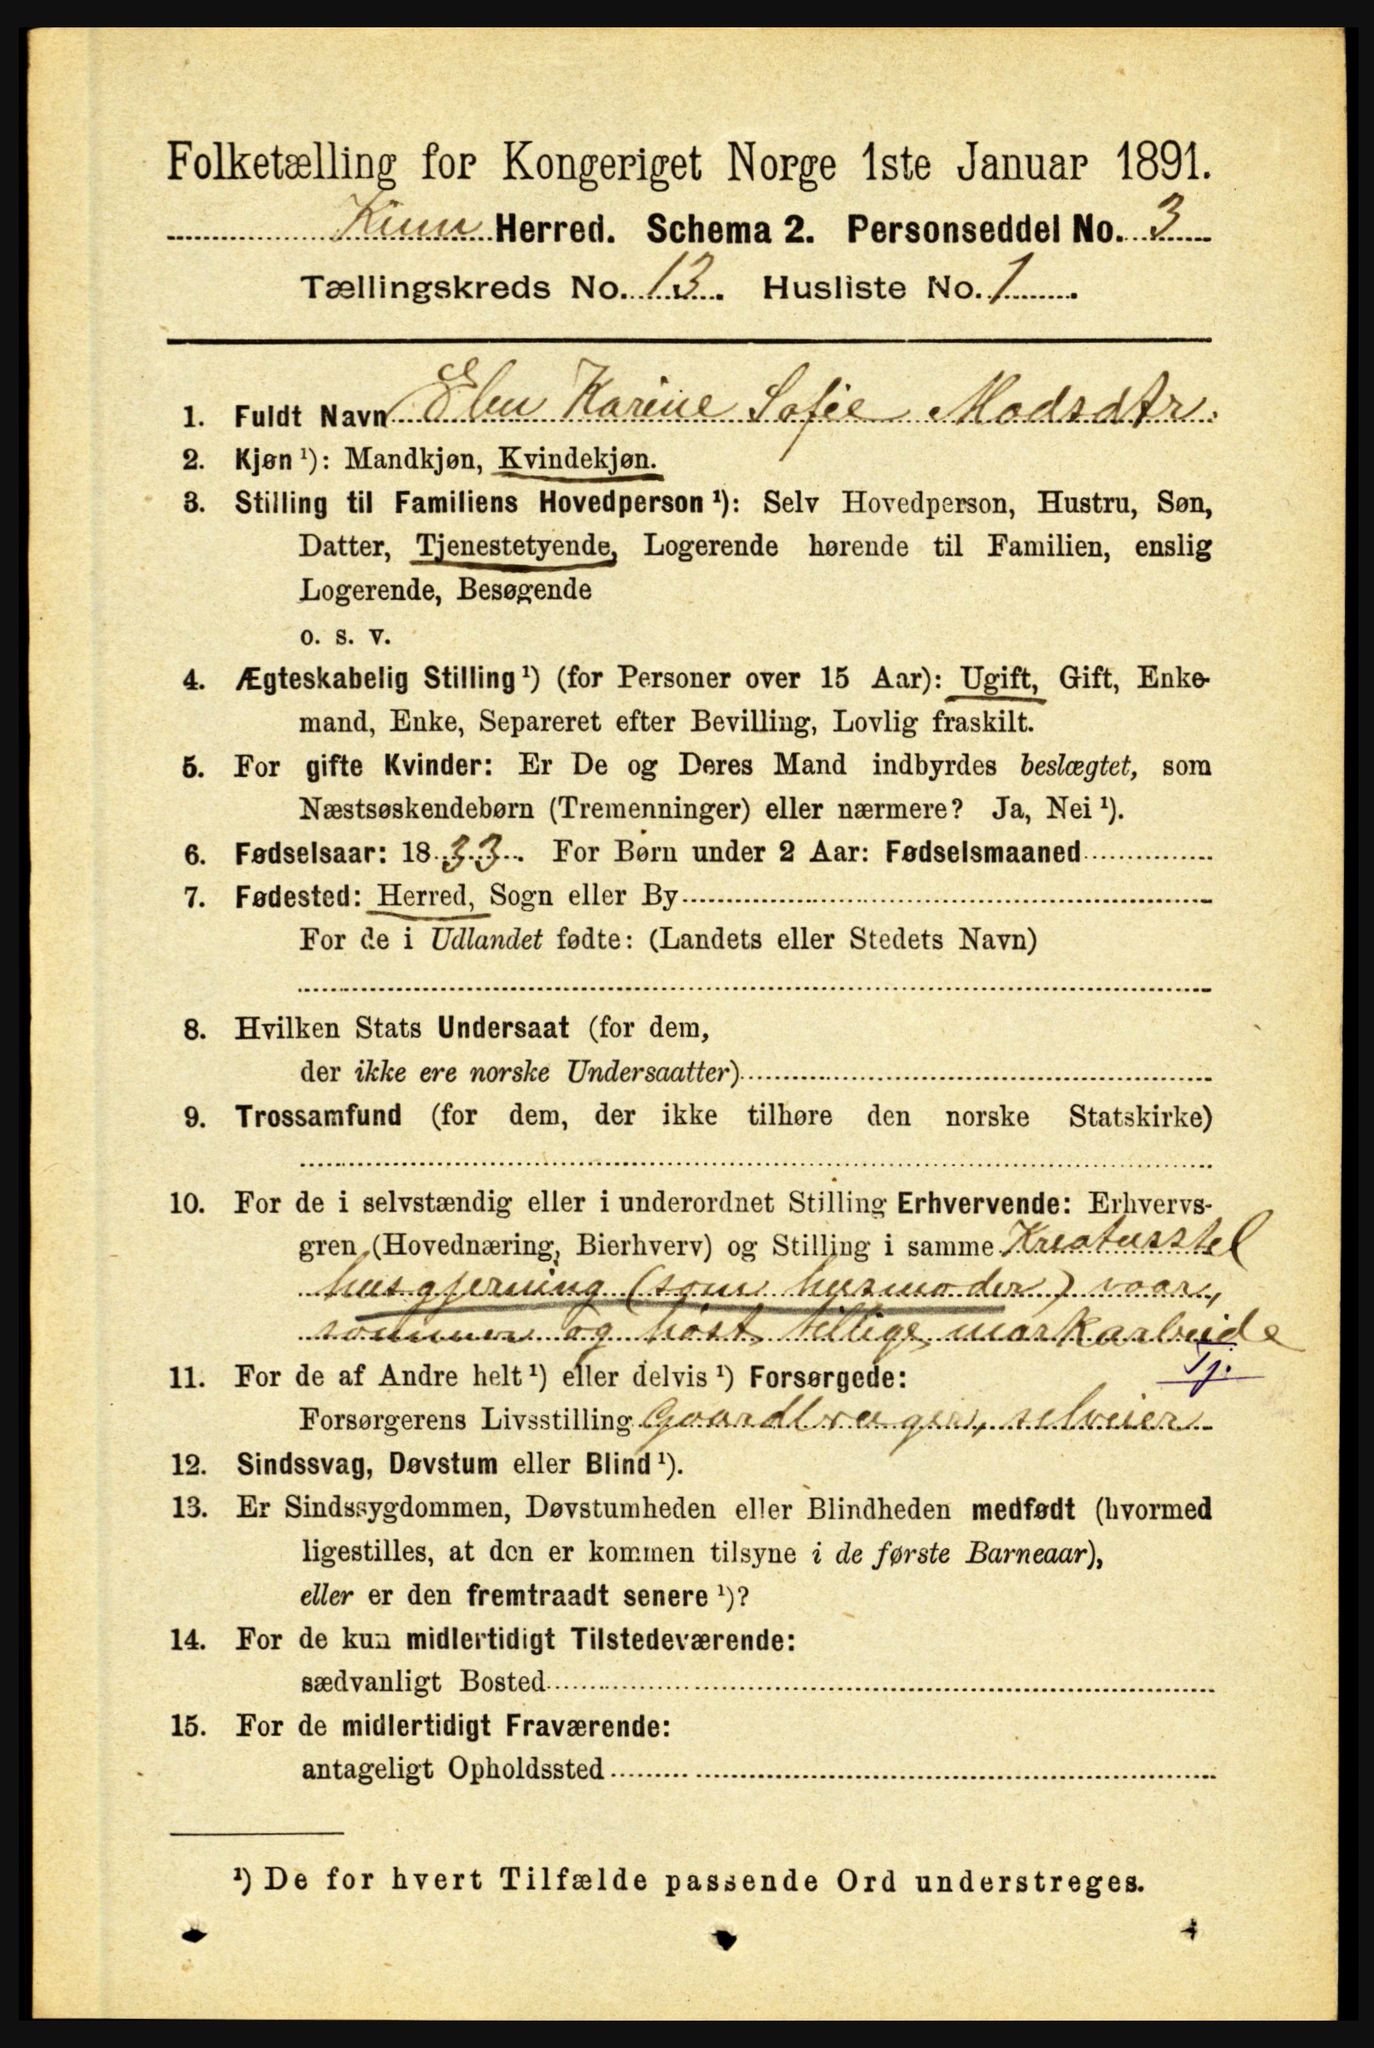 Folketælling for Kongeriget Norge 1ste Januar 1891.
Kinn Herred. Schema 2. Personseddel No. 3
Tællingskreds No. 13. Husliste No. 1.
1. Fuldt Navn Elen Karine Sofie Madsdtr.
2. Kjøn ¹): Mandkjøn, Kvindekjøn.
3. Stilling til Familiens Hovedperson ¹): Selv Hovedperson, Hustru, Søn,
Datter, Tjenestetyende, Logerende hørende til Familien, enslig
Logerende, Besøgende
o. s. v.
4. Ægteskabelig Stilling ¹) (for Personer over 15 Aar): Ugift, Gift, Enke-
mand, Enke, Separeret efter Bevilling, Lovlig fraskilt.
5. For gifte Kvinder: Er De og Deres Mand indbyrdes beslægtet, som
Næstsøskendebørn (Tremenninger) eller nærmere? Ja, Nei ¹).
6. Fødselsaar: 1833. For Børn under 2 Aar: Fødselsmaaned
7. Fødested: Herred, Sogn eller By
For de i Udlandet fødte: (Landets eller Stedets Navn)
8. Hvilken Stats Undersaat (for dem,
der ikke ere norske Undersaatter)
9. Trossamfund (for dem, der ikke tilhøre den norske Statskirke)
10. For de i selvstændig eller i underordnet Stilling Erhvervende: Erhvervs-
gren (Hovednæring, Bierhverv) og Stilling i samme Kreaturstel
husgjerning (som husmoder) vaar,
sommer og høst tillige markarbeide
Tj.
11. For de af Andre helt ¹) eller delvis ¹) Forsørgede:
Forsørgerens Livsstilling Gaardbruger, selveier
12. Sindssvag, Døvstum eller Blind ¹).
13. Er Sindssygdommen, Døvstumheden eller Blindheden medfødt (hvormed
ligestilles, at den er kommen tilsyne i de første Barneaar),
eller er den fremtraadt senere ¹)?
14. For de kun midlertidigt Tilstedeværende:
sædvanligt Bosted
15. For de midlertidigt Fraværende:
antageligt Opholdssted
¹) De for hvert Tilfælde passende Ord understreges.